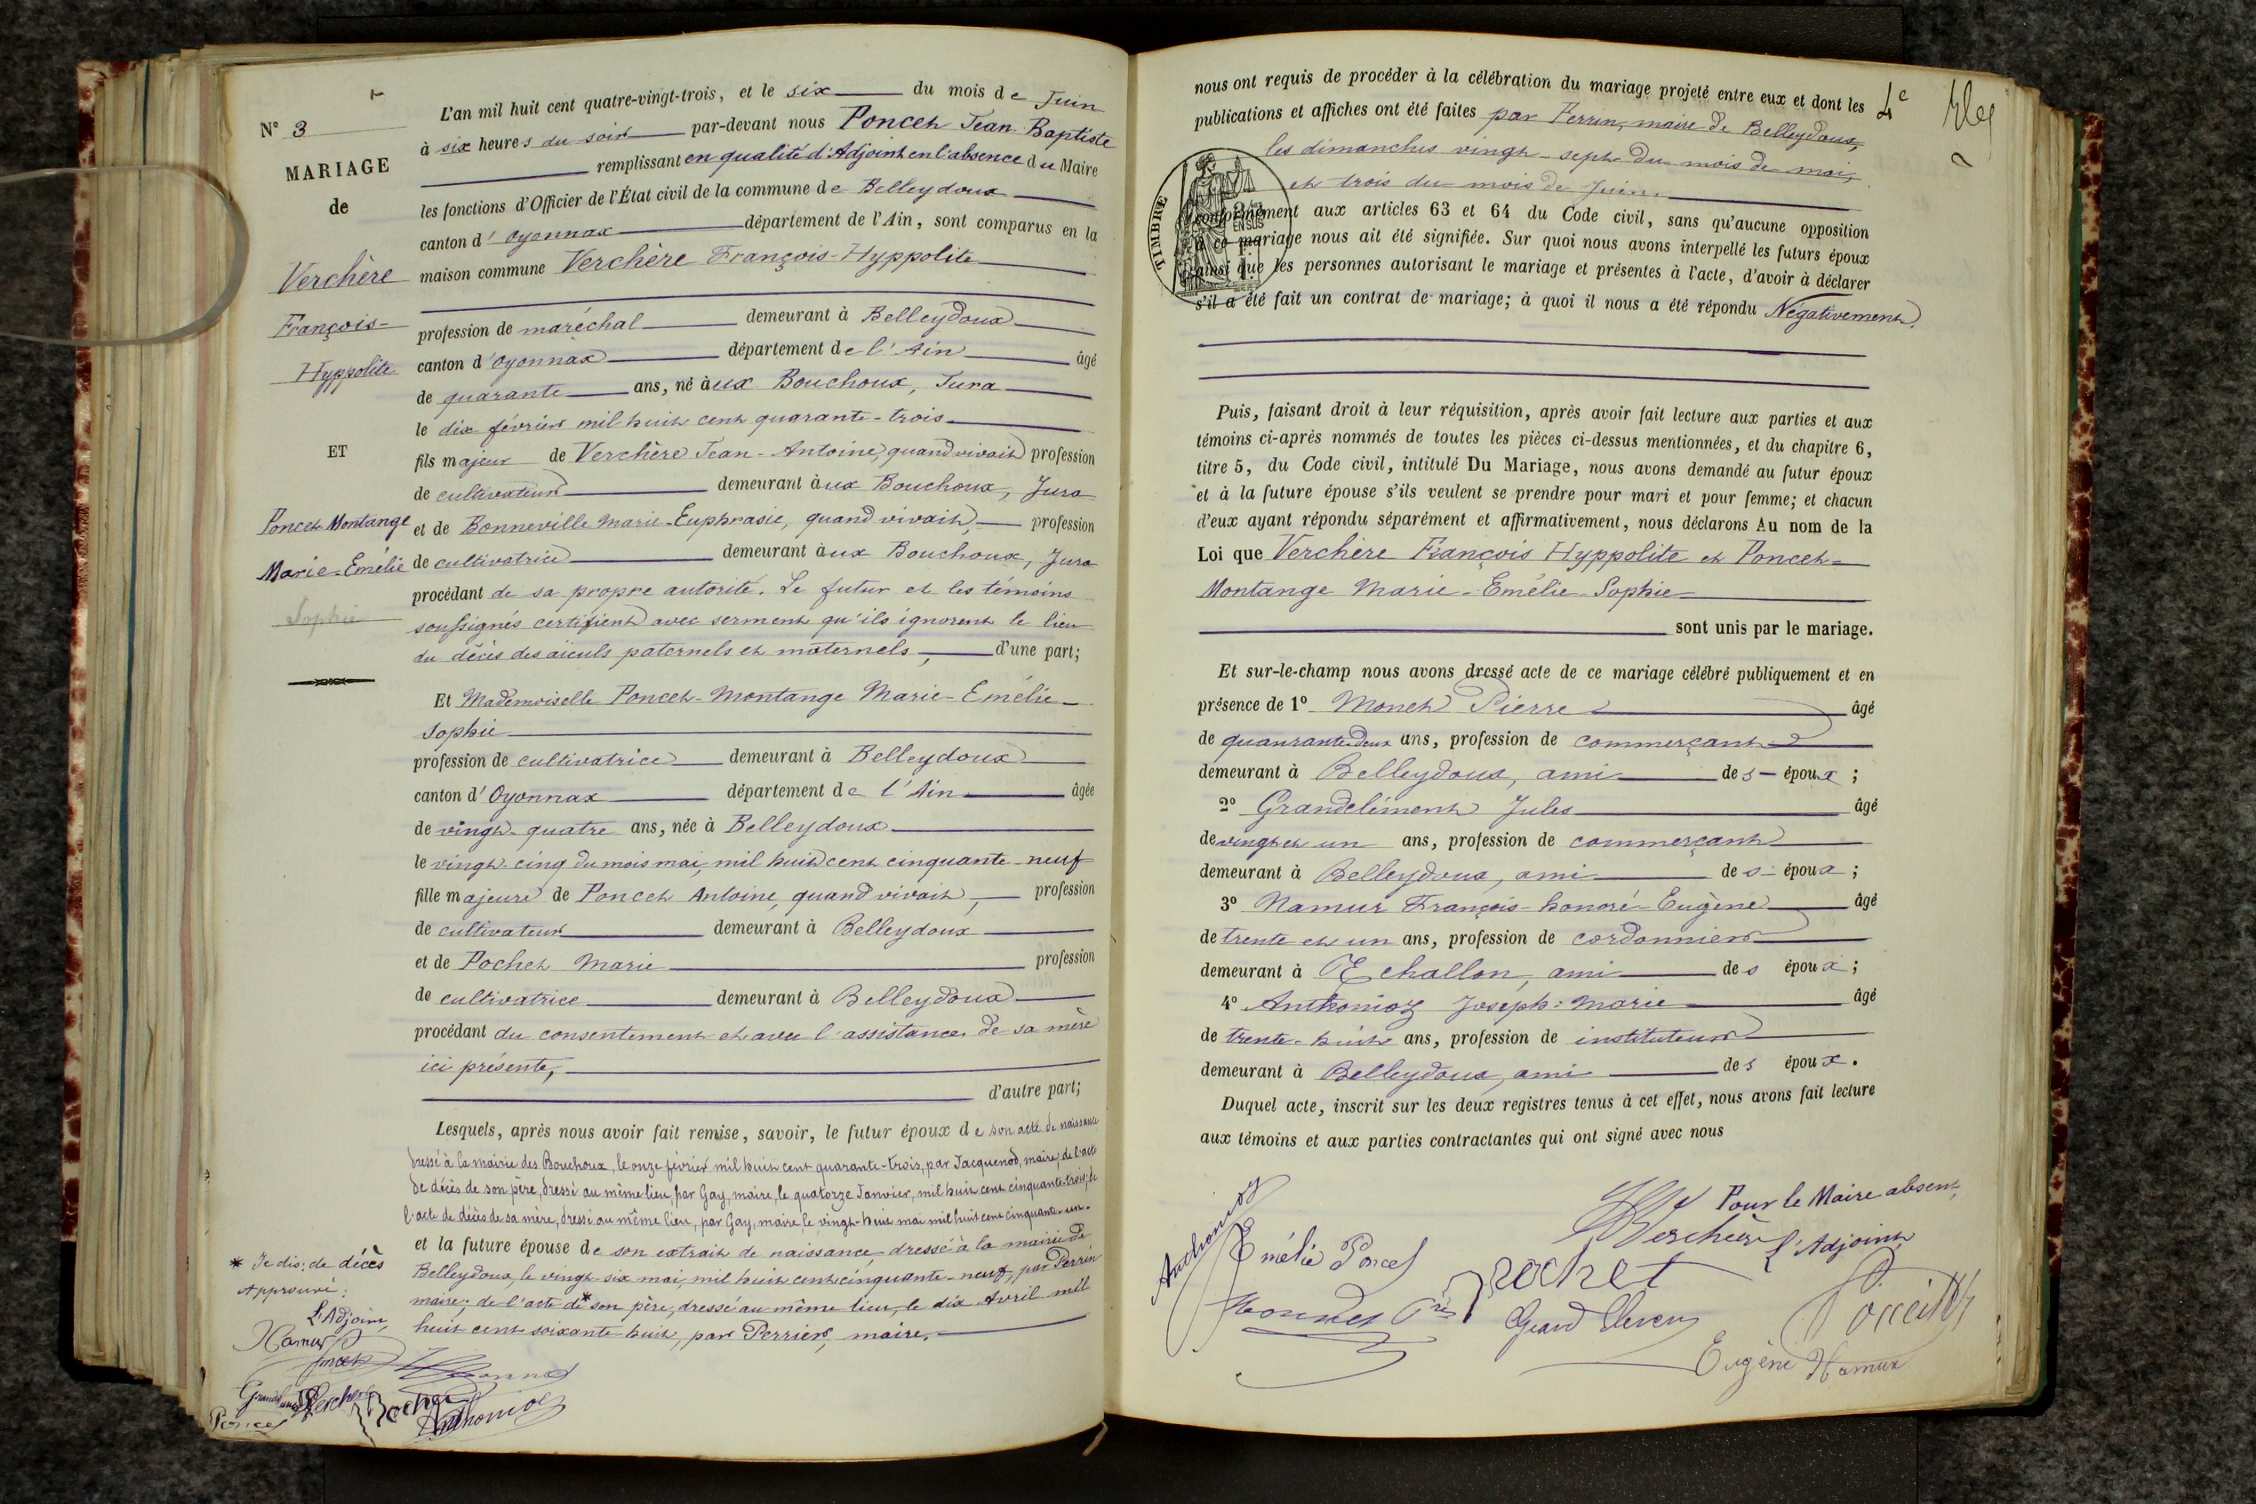 N° 3
MARIAGE
de
Verchère
François-
Hyppolite
ET
Poncet-Montange
Marie-Emélie
Sophie
L'an mil huit cent quatre-vingt-trois, et le six du mois de Juin
à six heures du soir par-devant nous Poncet Jean-Baptiste
remplissant en qualité d'Adjoint en l'absence du Maire
les fonctions d'Officier de l'État civil de la commune de Belleydoux
canton d'Oyonnax département de l'Ain, sont comparus en la
maison commune Verchère François-Hyppolite
profession de maréchal demeurant à Belleydoux
canton d'Oyonnax département de l'Ain âgé
de quarante ans, né àux Bouchoux, Jura
le dix février mil huit cent quarante-trois
fils majeur de Verchère Jean-Antoine, quand vivait profession
de cultivateur demeurant àux Bouchoux, Jura
et de Bonneville Marie-Euphrasie, quand vivait, profession
de cultivatrice demeurant àux Bouchoux, Jura
procédant de sa propre autorité. Le futur et les témoins
soussignés certifient avec serment qu'ils ignorent le lieu
du décès des aïeuls paternels et maternels, d'une part;
Et Mademoiselle Poncet-Montange Marie-Emélie-
Sophie
profession de cultivatrice demeurant à Belleydoux
canton d'Oyonnax département de l'Ain âgée
de vingt-quatre ans, née à Belleydoux
le vingt-cinq du mois mai, mil huit cent cinquante-neuf
fille majeure de Poncet Antoine, quand vivait, profession
de cultivateur demeurant à Belleydoux
et de Pochet Marie profession
de cultivatrice demeurant à Belleydoux
procédant du consentement et avec l'assistance de sa mère
ici présente,
d'autre part;
Lesquels, après nous avoir fait remise, savoir, le futur époux de son acte de naissance
dressé à la mairie des Bouchoux, le onze février mil huit cent quarante-trois, par Jacquenod, maire; de l'acte
de décès de son père, dressé au même lieu, par Gay, maire, le quatorze Janvier, mil huit cent cinquante-trois; de
l'acte de décès de sa mère, dressé au même lieu, par Gay, maire le vingt-huit mai mil huit cent cinquante-un.
et la future épouse de son extrait de naissance, dressé à la mairie de
Belleydoux, le vingt-six mai, mil huit cent cinquante-neuf, par Perrin
maire; de l'acte de * son père, dressé au même lieu, le dix Avril mil
huit cent soixante huit, par Perrier, maire.
* Je dis: de décès
Approuvé:
L'Adjoint,
Namur
Poncet
Monnet
Grandclément
Verchère
Pochet
Poncet
Anthonioz
nous ont requis de procéder à la célébration du mariage projeté entre eux et dont les
publications et affiches ont été faites par Perrin, maire de Belleydoux,
les dimanches vingt-sept du mois de mai,
et trois du mois de Juin.
4e
TIMBRE
conformément aux articles 63 et 64 du Code civil, sans qu'aucune opposition
à ce mariage nous ait été signifiée. Sur quoi nous avons interpellé les futurs époux
ainsi que les personnes autorisant le mariage et présentes à l'acte, d'avoir à déclarer
s'il a été fait un contrat de mariage; à quoi il nous a été répondu Négativement.
Puis, faisant droit à leur réquisition, après avoir fait lecture aux parties et aux
témoins ci-après nommés de toutes les pièces ci-dessus mentionnées, et du chapitre 6,
titre 5, du Code civil, intitulé Du Mariage, nous avons demandé au futur époux
et à la future épouse s'ils veulent se prendre pour mari et pour femme; et chacun
d'eux ayant répondu séparément et affirmativement, nous déclarons Au nom de la
Loi que Verchère François Hyppolite et Poncet-
Montange Marie-Emélie-Sophie
sont unis par le mariage.
Et sur-le-champ nous avons dressé acte de ce mariage célébré publiquement et en
présence de 1° Monet Pierre âgé
de quanrante-deux ans, profession de commerçant
demeurant à Belleydoux, ami des époux;
2° Grandclément Jules âgé
de vingt et un ans, profession de commerçant
demeurant à Belleydoux, ami des époux;
3° Namur François-honoré-Eugène âgé
de trente et un ans, profession de cordonnier
demeurant à Echallon, ami des époux;
4° Anthonioz Joseph-Marie âgé
de trente-huit ans, profession de instituteur
demeurant à Belleydoux, ami des époux.
Duquel acte, inscrit sur les deux registres tenus à cet effet, nous avons fait lecture
aux témoins et aux parties contractantes qui ont signé avec nous
Anthonioz
Emélie Poncet
Verchère
Pour le Maire absent,
L'Adjoint,
Pochet
Poncet
Eugène Namur